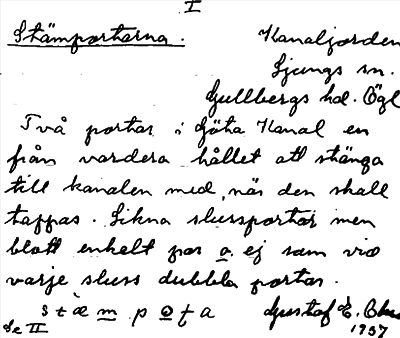 I
Stämportarna.
Kanaljorden
Ljungs sn.
Gullbergs hd. Ögl
Två portar i Göta Kanal en
från vardera hållet att stänga
till kanalen med, när den skall
tappas. Likna slussportar men
blott enkelt par o. ej som vid
varje sluss dubbla portar.
stæm pota
Gustaf E.
Se II
1937